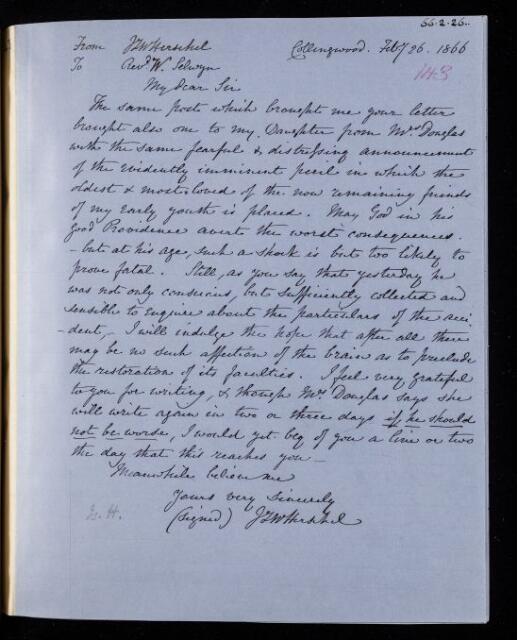 66.2.26.
From JFWHerschel Collingwood. Feby 26. 1866
To Revd. W. Selwyn 148
My Dear Sir
The same post which brought me your letter
brought also one to my Daughter from Mrs Douglas
with the same fearful & distressing announcement
of the evidently imminent peril in which the
oldest & most loved of the now remaining friends
of my early youth is placed. May God in his
good Providence avert the worst consequences.
- but at his age, such a shock is but too likely to
prove fatal. Still, as you say that yesterday he
was not only conscious, but sufficiently collected and
sensible to enquire about the particulars of the acci-
-dent, - I will indulge the hope that after all there
may be no such affection of the brain as to preclude
the restoration of its faculties. I feel very grateful
to you for writing, & though Mrs Douglas says she
will write again in two or three days if he should
not be worse, I would yet beg of you a line or two
the day that this reaches you -
Meanwhile believe me
Yours very sincerely
(signed) JFWHerschel